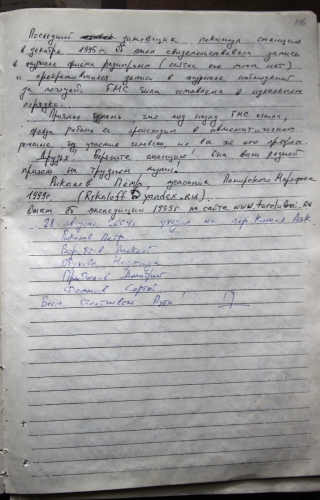 106
Последний зимовщик покинул станцию
в декабре 1995г. Об этом свидетельствовала запись
в журнале приёма радиограмм (сейчас его почему нет)
и прекратившиеся записи в журнале наблюдений
за погодой. ГМС была оставлена в идеальном
порядке.
Приятно, что год назад ГМС ожила,
правда работа её происходит в автоматическом
режиме, без участия человека, но всё же это здорово.
Друзья! Берегите станцию! Она ваш родной
приют на трудном пути!
Рыкалов Пётр, участник Памирского Марафона
1999г (Rykaloff@yandex.ru).
Отчёт об экспедиции 1999г на сайте www.turclubmai.ru
28 августа 2014г уходим на пер Кашал Аяк
Рыкалов Петр
Воробьев
Дмитрий
Сергей
Всем Счастливого Пути!